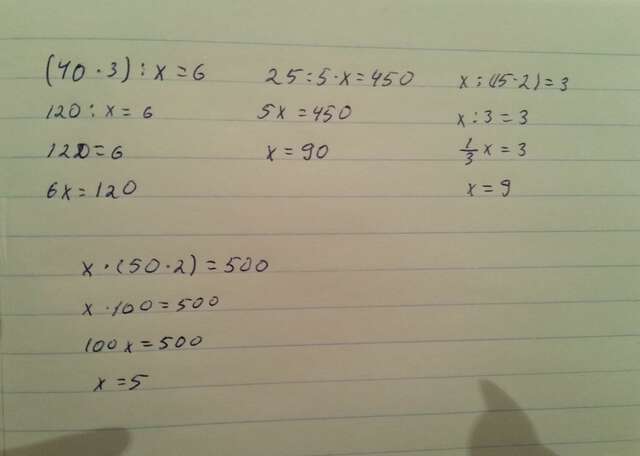 (40 · 3) : x = 6
120 : x = 6
= 6
6x = 120
25 : 5 · x = 450
5x = 450
x = 90
x : (5 - 2) = 3
x : 3 = 3
1/3 x = 3
x = 9
x · (50 · 2) = 500
x · 100 = 500
100x = 500
x = 5